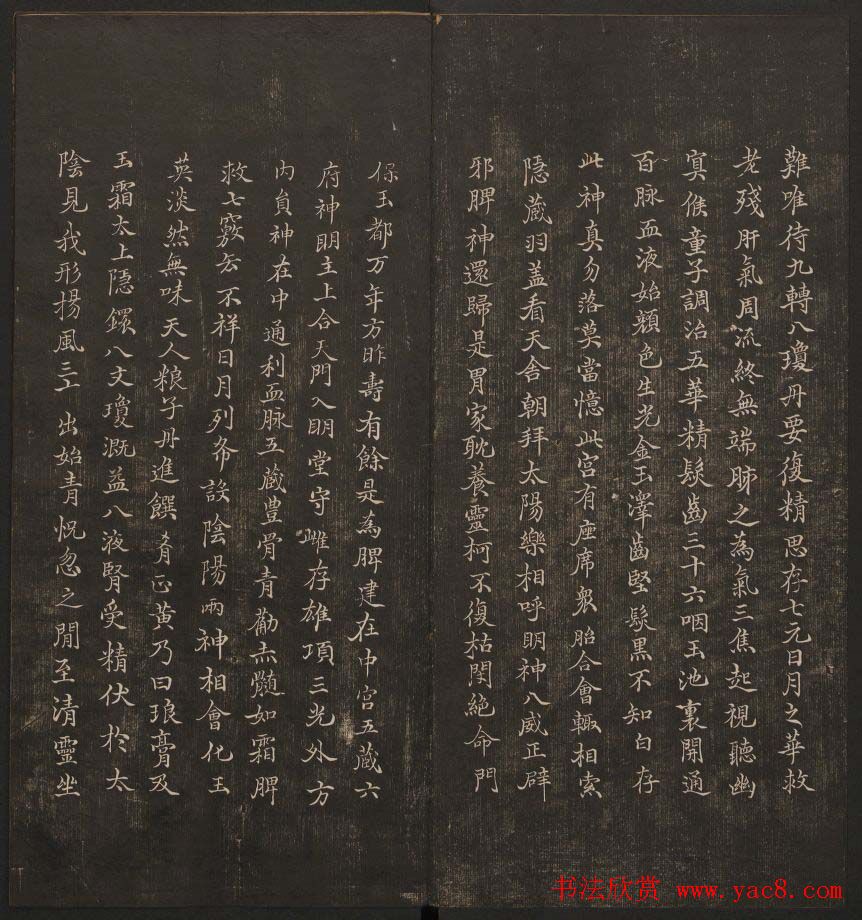 難唯待九轉八瓊丹要復精思存七元日月之華救
老殘肝氣周流終無端肺之為氣三焦起視聽幽
冥候童子調治五華精髮齒三十六咽玉池裏開通
百脉血液始顏色生光金玉澤齒堅髮黑不知白存
此神真勿落莫當憶此宮有座席衆胎合會輙相索
隱蔵羽盖看天舍朝拜太陽樂相呼明神八威正辟
邪脾神還歸是胃家耽養靈柯不復枯閇絕命門
保玉都万年方昨壽有餘是為脾建在中宮五蔵六
府神明主上合天門入明堂守雌存雄項三光外方
内負神在中通利血脉五蔵豊骨青勸赤髓如霜脾
救七竅去不祥日月列布設陰陽兩神相會化玉
英淡然無味天人粮子丹進饌肴正黄乃曰琅膏及
玉霜太上隱鐶八文瓊溉益八液腎受精伏扵太
陰見我形揚風三 出始青怳忽之間至清靈坐
书法欣赏 www.yac8.com